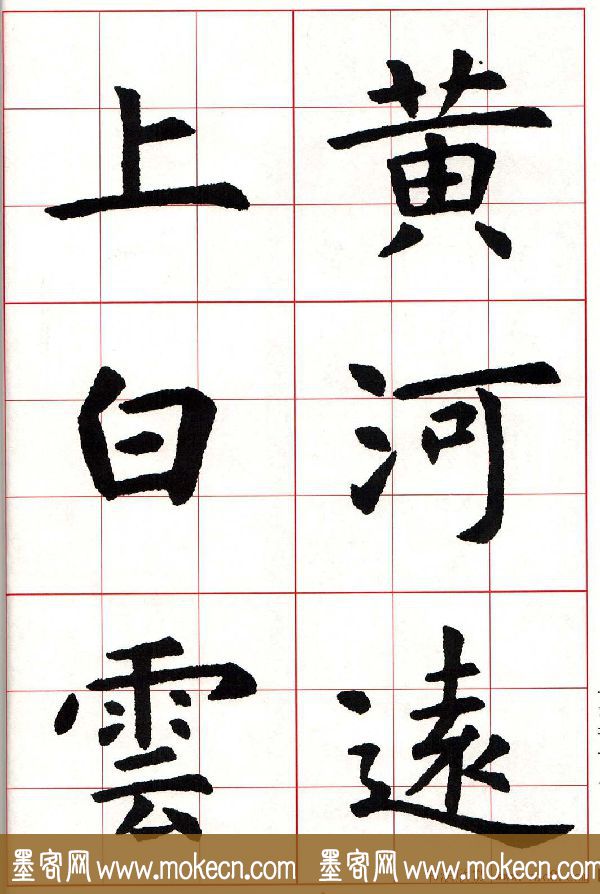 黄河遠
上白雲
墨客网 www.mokecn.com 墨客网 www.mokecn.com